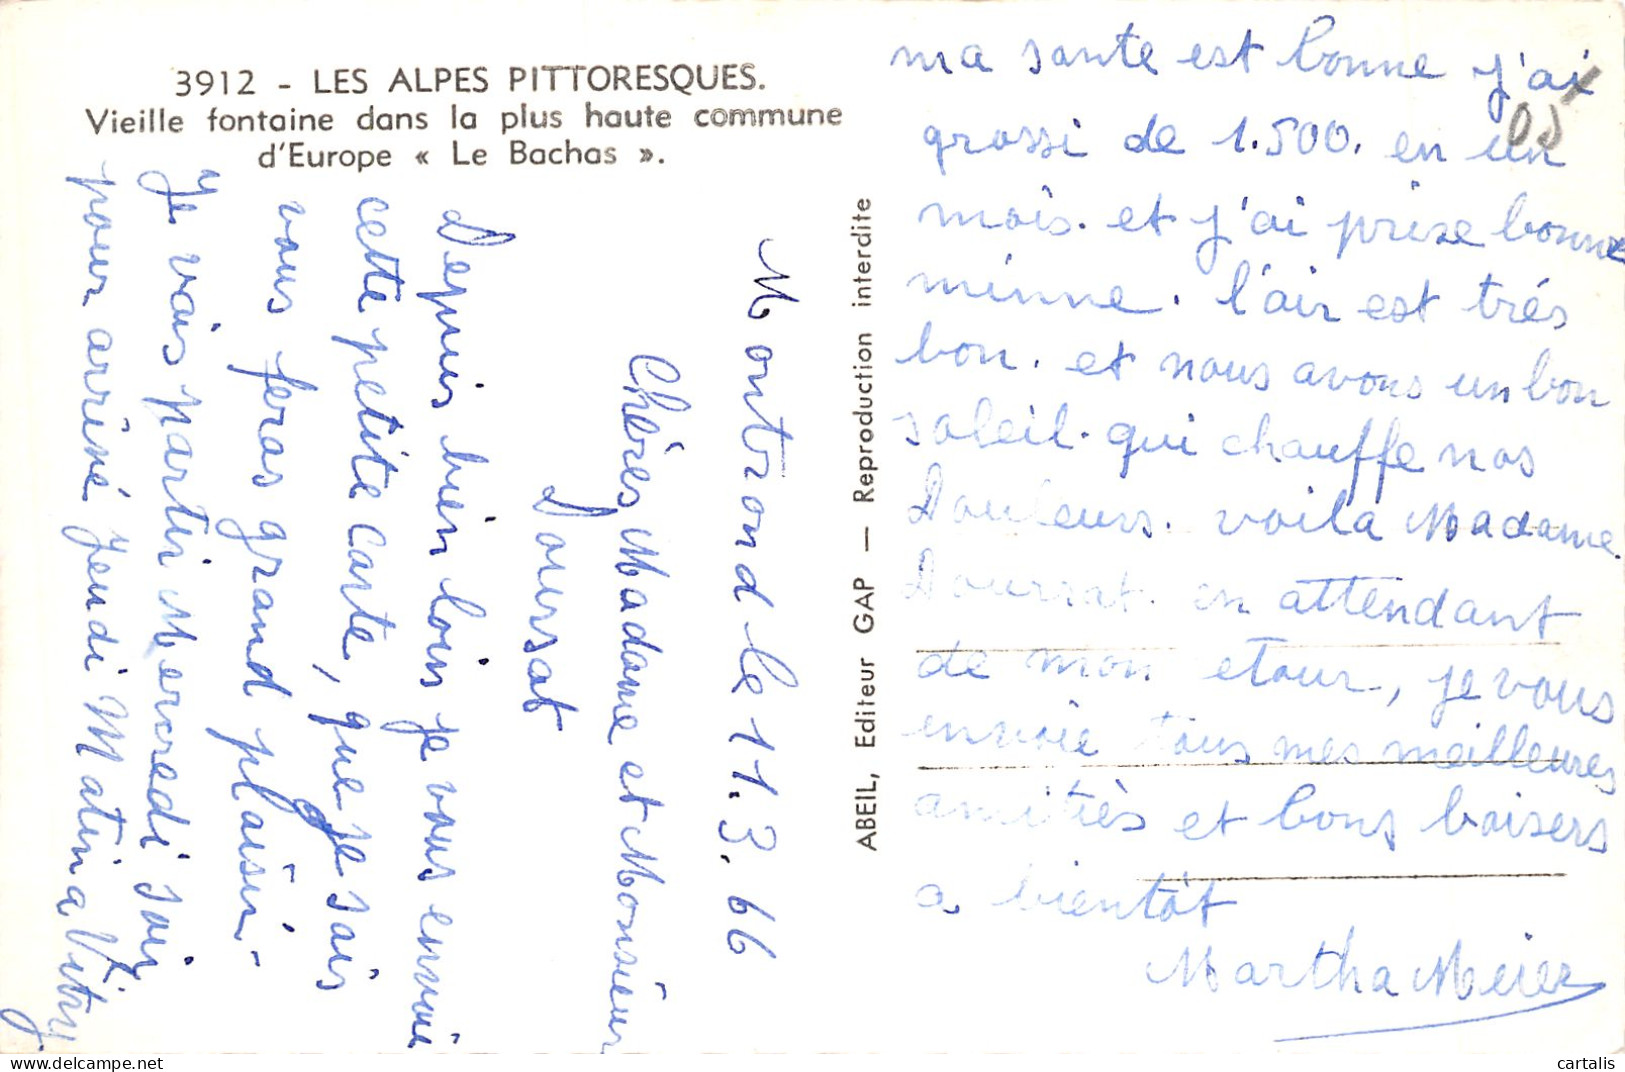 3912 - LES ALPES PITTORESQUES.
Vieille fontaine dans la plus haute commune
d'Europe « Le Bachas ».
Montrond le 11.3.66
Chères Madame et Monsieur
Doursat
Depuis bien loin je vous envoie
cette petite carte, que je sais
vous feras grand plaisir.
Je vais partir Mercredi soir
pour arrivé Jeudi Matin a Vitry.
ABEIL, Editeur GAP — Reproduction interdite
ma sante est bonne j'ai
grossi de 1.500. en un
mois. et j'ai prise bonne
minne. l'air est trés
bon. et nous avons un bon
soleil. qui chauffe nos
Douleurs. voila Madame
Doursat. en attendant
de mon etour, je vous
envoie tous mes meilleures
amitiès et bons baisers
a bientôt
Martha Meier
cartalis